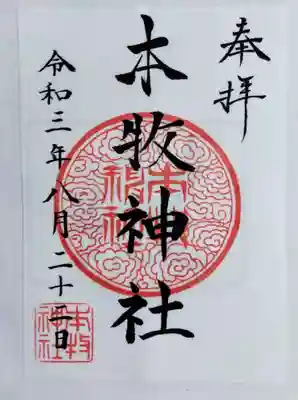 奉拝
本牧神社
令和三年八月二十二日
本牧
神社
本牧
神社